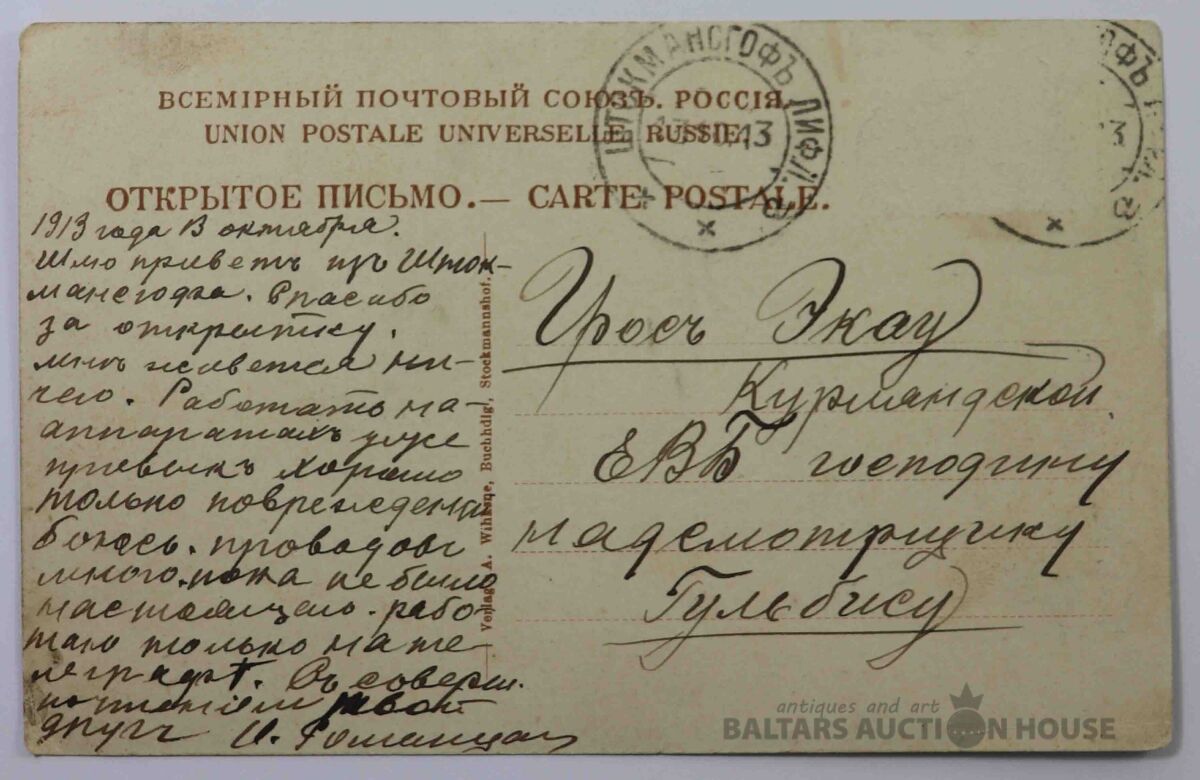 ВСЕМІРНЫЙ ПОЧТОВЫЙ СОЮЗЪ. РОССІЯ.
UNION POSTALE UNIVERSELLE. RUSSIE.
ОТКРЫТОЕ ПИСЬМО.— CARTE POSTALE.
ШТОКМАНСГОФЪ ЛИФЛ.
13 10 13
1913 года 13 октября.
Шлю приветъ изъ Шток-
мансгофа. Спасибо
за открытку.
живется ни-
чего. Работать на
аппаратахъ уже
привыкъ хорошо
только повреждени
боюсь. проводовъ
много. пока не было
настоящаго. рабо
таю только на те-
леграфѣ. Съ соверш.
твой
другъ И.
Verlag A. Wihksne, Buchhdlg., Stockmannshof.
Гросъ Экау
Курляндской
ЕВБ господину
надсмотрщику
Гульбису
antiques and art
BALTARS AUCTION HOUSE